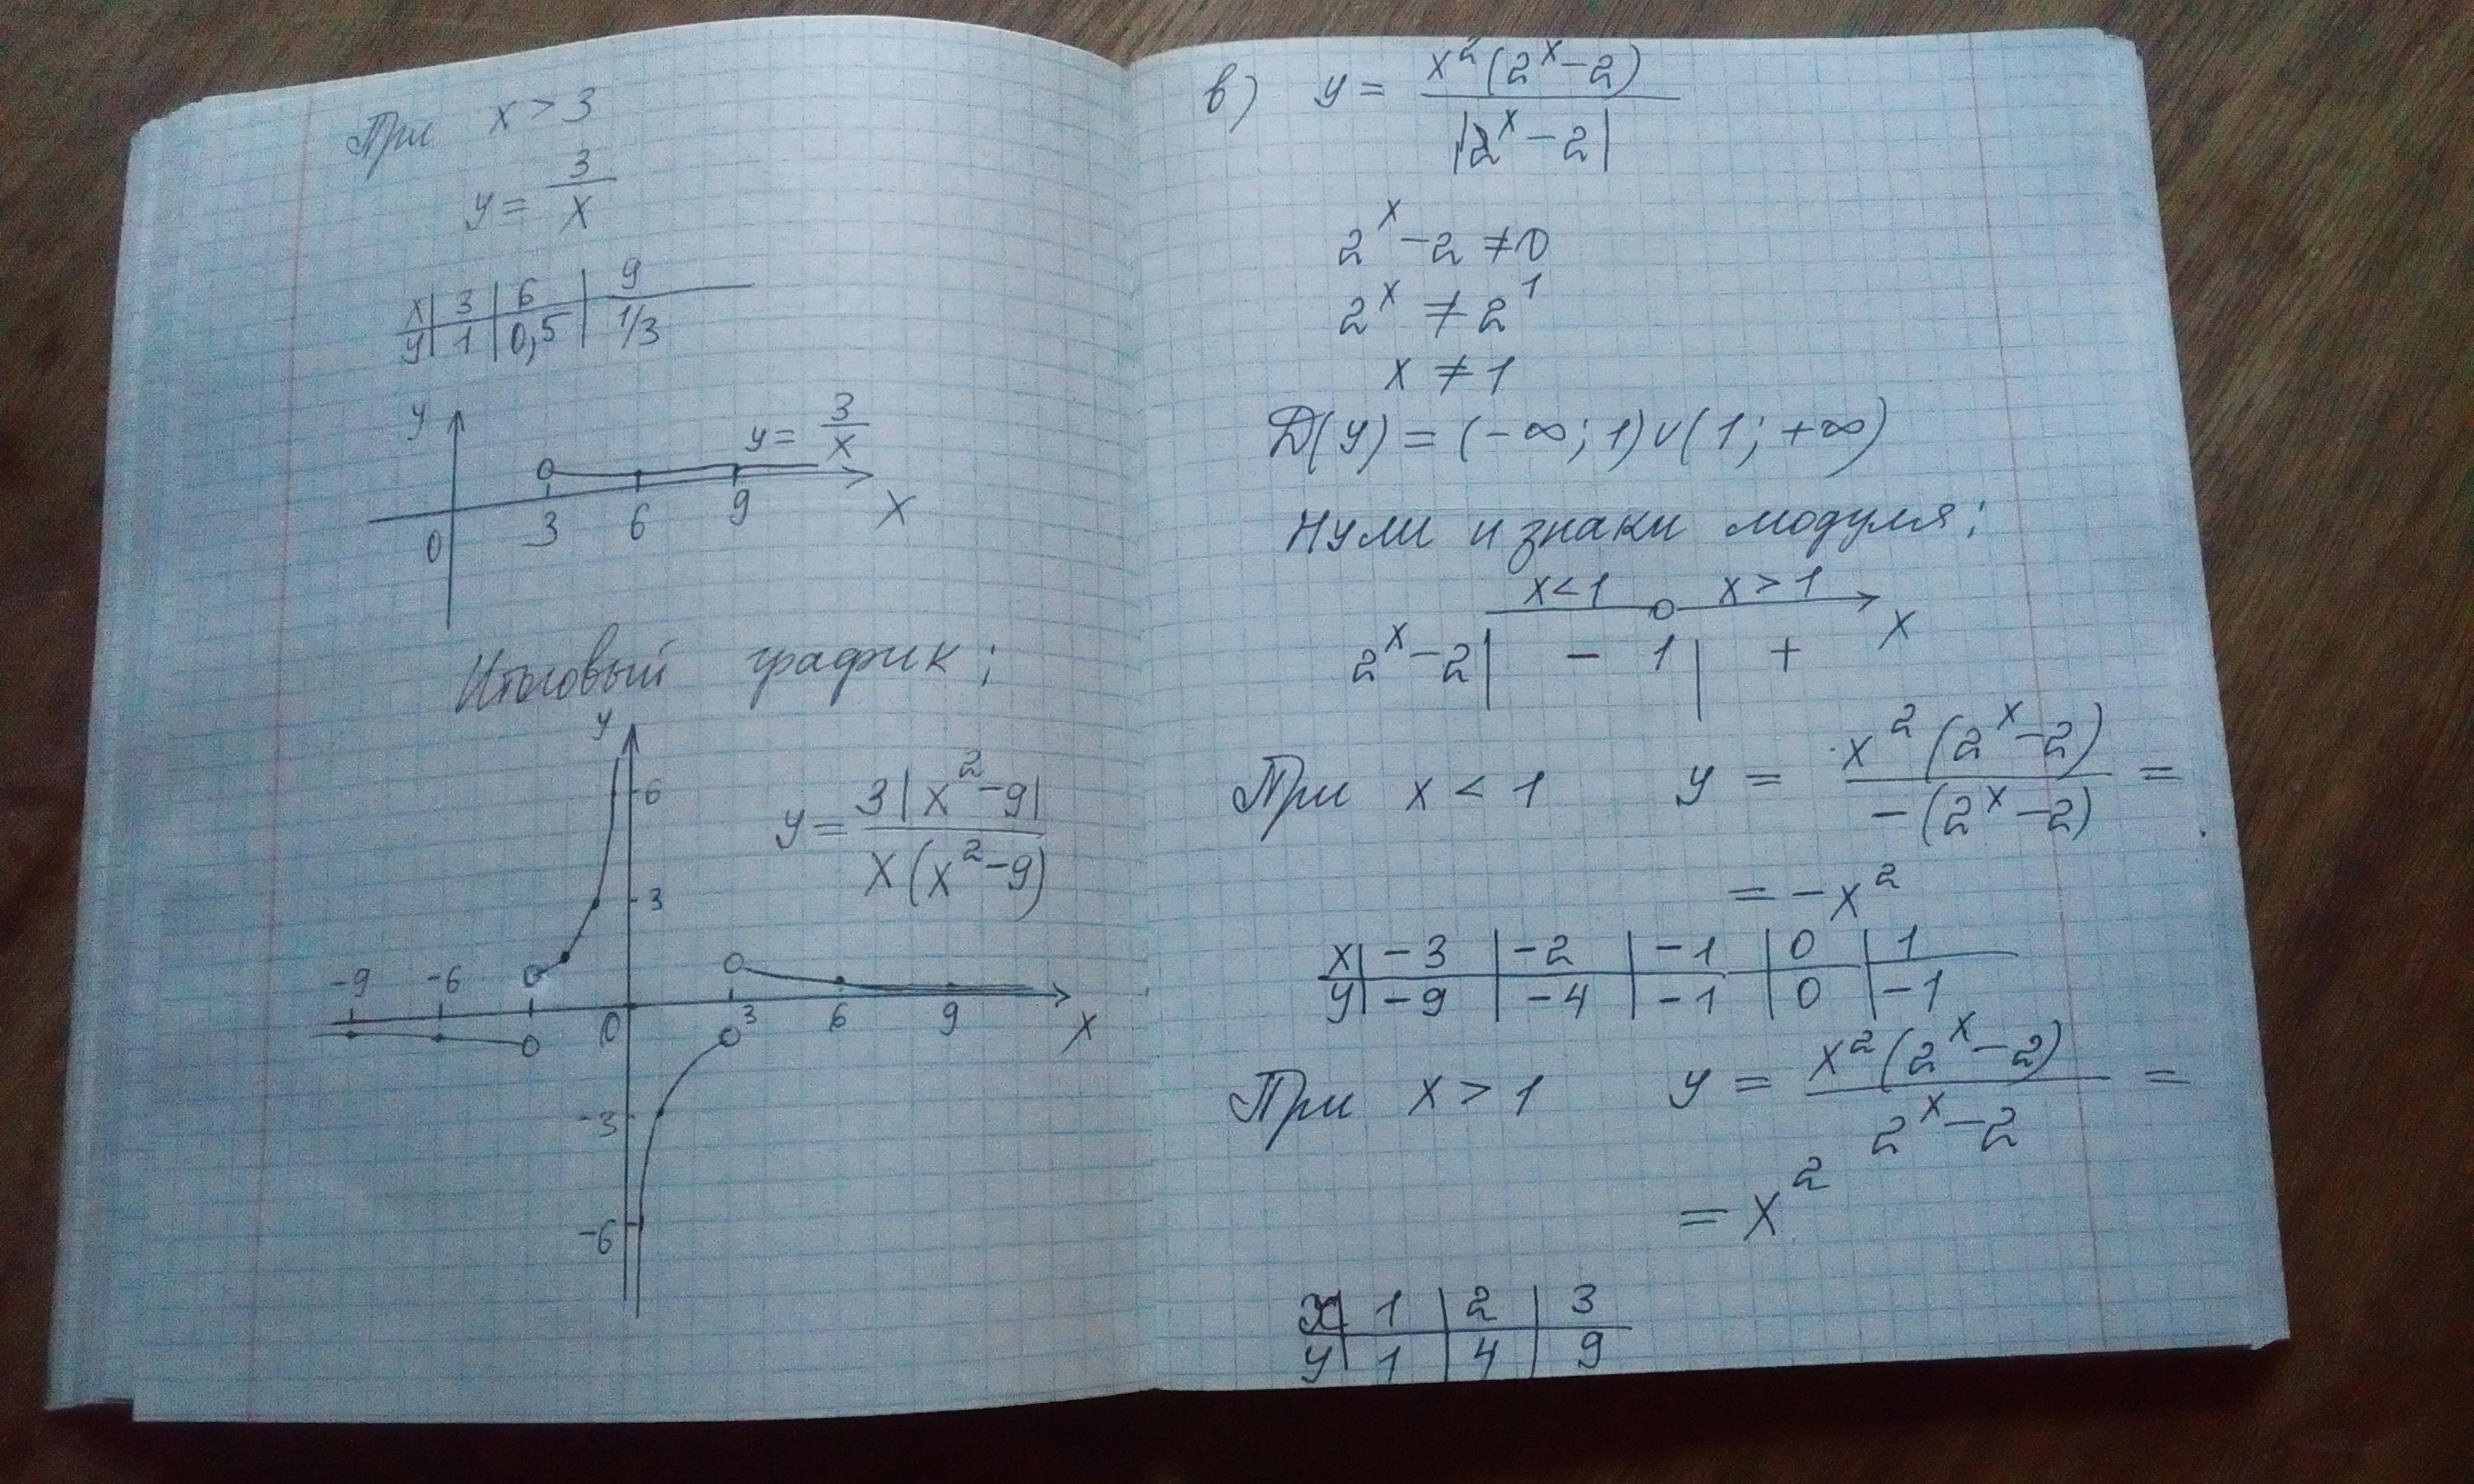 При x > 3
y = 3/x
x | 3 | 6 | 9
y | 1 | 0,5 | 1/3
y
y = 3/x
0 3 6 9 x
Итоговый график:
y
6
y = 3|x²-9| / x(x²-9)
3
-9 -6
0 3 6 9 x
-3
-6
в) y = x²(2ˣ-2) / |2ˣ-2|
2ˣ-2 ≠ 0
2ˣ ≠ 2¹
x ≠ 1
D(y) = (-∞; 1)∪(1; +∞)
Нули и знаки модуля:
x<1 x>1
x
2ˣ-2 | - 1 | +
При x < 1 y = x²(2ˣ-2) / -(2ˣ-2) =
= -x²
x | -3 | -2 | -1 | 0 | 1
y | -9 | -4 | -1 | 0 | -1
При x > 1 y = x²(2ˣ-2) / 2ˣ-2 =
= x²
x | 1 | 2 | 3
y | 1 | 4 | 9